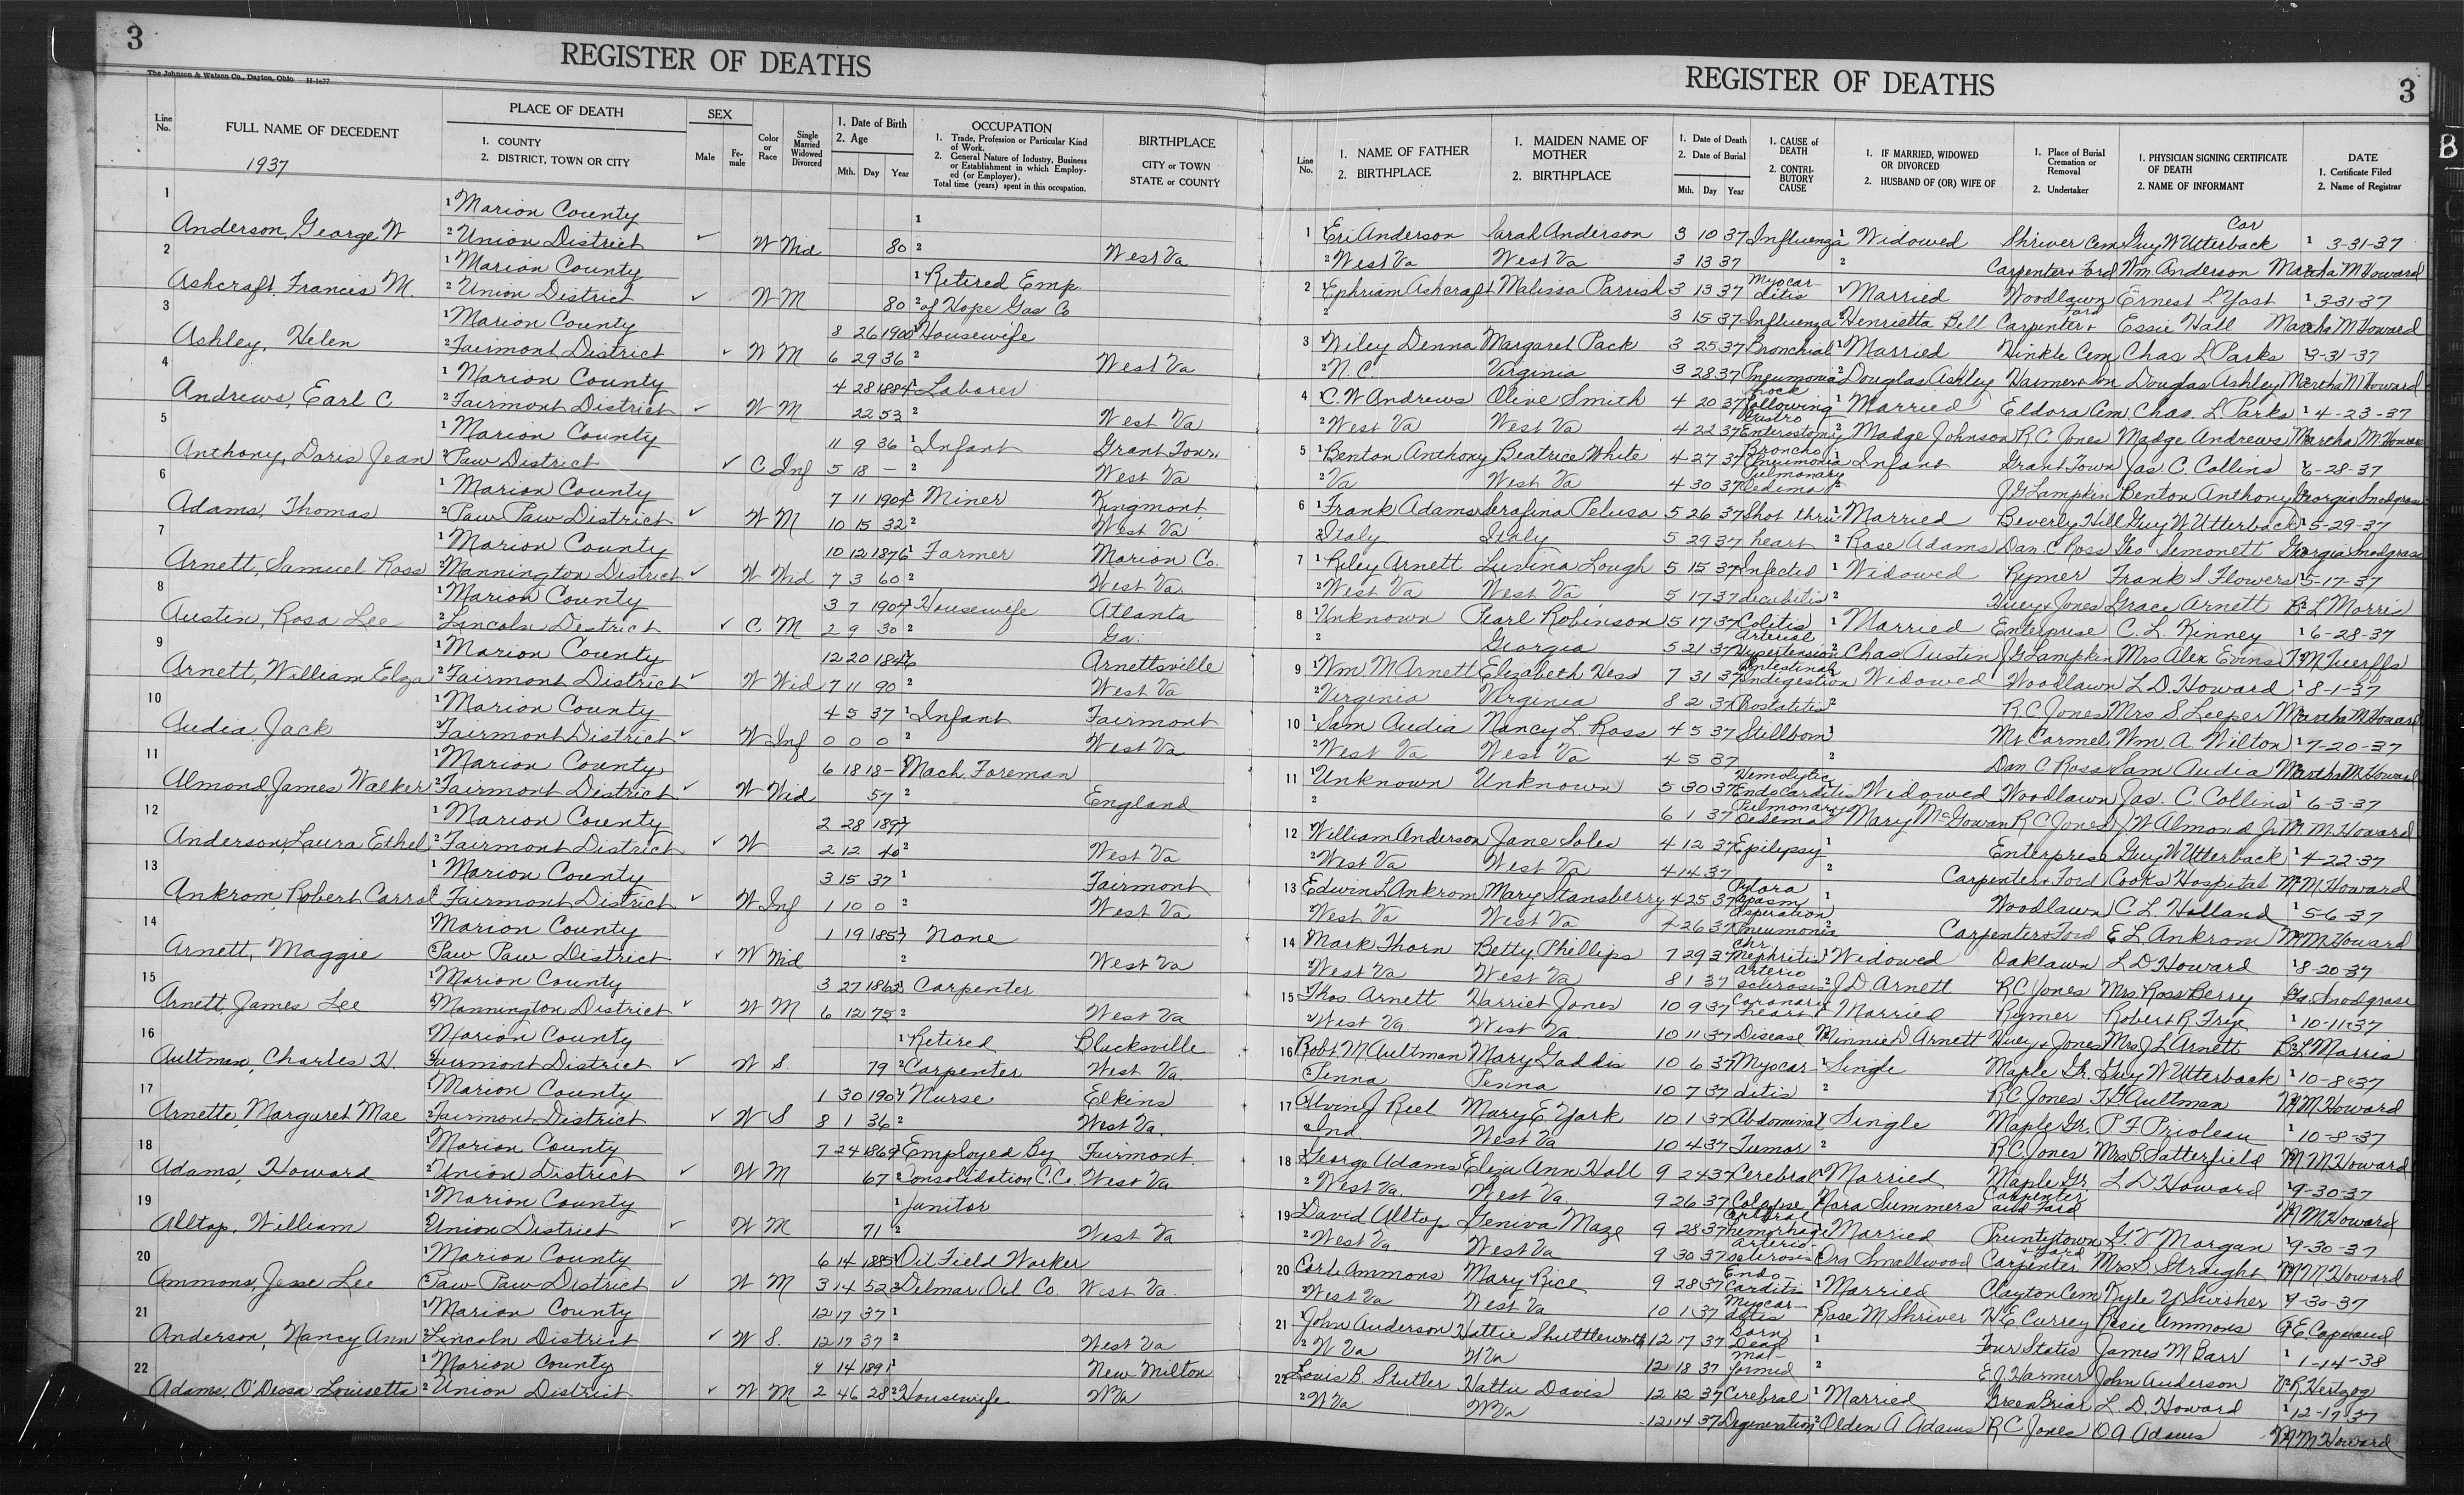 3
REGISTER OF DEATHS
The Johnson & Watson Co., Dayton, Ohio H-1677
Line No.
FULL NAME OF DECEDENT
1937
PLACE OF DEATH
1. COUNTY
2. DISTRICT, TOWN OR CITY
SEX
Male Female
Color or Race
Single Married Widowed Divorced
1. Date of Birth
2. Age
Mth. Day Year
OCCUPATION
1. Trade, Profession or Particular Kind of Work.
2. General Nature of Industry, Business or Establishment in which Employed (or Employer).
Total time (years) spent in this occupation.
BIRTHPLACE
CITY or TOWN
STATE or COUNTY
1 1 Marion County 1
Anderson, George W 2 Union District ✓ W Wid 80 2 West Va
2 1 Marion County 1 Retired Emp.
Ashcraft, Francis M. 2 Union District ✓ W M 80 2 of Hope Gas Co
3 1 Marion County 8 26 1900 Housewife
Ashley, Helen 2 Fairmont District ✓ W M 6 29 36 2 West Va
4 1 Marion County 4 28 1884 Laborer
Andrews, Earl C. 2 Fairmont District ✓ W M 22 53 2 West Va
5 1 Marion County 11 9 36 1 Infant Grant Town
Anthony, Doris Jean 2 Paw District ✓ C Inf 5 18 — 2 West Va
6 1 Marion County 7 11 1904 1 Miner Kingmont
Adams, Thomas 2 Paw Paw District ✓ W M 10 15 32 2 West Va
7 1 Marion County 10 12 1876 1 Farmer Marion Co.
Arnett, Samuel Ross 2 Mannington District ✓ W Wid 7 3 60 2 West Va.
8 1 Marion County 3 7 1907 Housewife Atlanta
Austin, Rosa Lee 2 Lincoln District ✓ C M 2 9 30 2 Ga.
9 1 Marion County 12 20 1846 Arnettsville
Arnett, William Elza 2 Fairmont District ✓ W Wid 7 11 90 2 West Va
10 1 Marion County 4 5 37 1 Infant Fairmont
Audia, Jack 2 Fairmont District ✓ W Inf 0 0 0 2 West Va
11 1 Marion County 6 18 18— Mach. Foreman
Almond, James Walker 2 Fairmont District ✓ W Wid 57 2 England
12 1 Marion County 2 28 1897
Anderson, Laura Ethel 2 Fairmont District ✓ W 2 12 40 2 West Va
13 1 Marion County 3 15 37 1 Fairmont
Ankrom, Robert Carrol 2 Fairmont District ✓ W Inf 1 10 0 2 West Va
14 1 Marion County 1 19 1857 None
Arnett, Maggie 2 Paw Paw District ✓ W Wid 2 West Va
15 1 Marion County 3 27 1862 Carpenter
Arnett, James Lee 2 Mannington District ✓ W M 6 12 75 2 West Va
16 1 Marion County 1 Retired Blacksville
Aultman, Charles H. 2 Fairmont District ✓ W S. 79 2 Carpenter West Va.
17 1 Marion County 1 30 1901 Nurse Elkins
Arnette, Margaret Mae 2 Fairmont District ✓ W S 8 1 36 2 West Va.
18 1 Marion County 7 24 1869 Employed By Fairmont
Adams, Howard 2 Union District ✓ W M 67 2 Consolidation C. Co. West Va.
19 1 Marion County 1 Janitor
Alltop, William 2 Union District ✓ W M 71 2 West Va
20 1 Marion County 6 14 1885 Oil Field Worker
Ammons, Jesse Lee 2 Paw Paw District ✓ W M 3 14 52 2 Delmar Oil Co. West Va.
21 1 Marion County 12 17 37 1
Anderson, Nancy Ann 2 Lincoln District ✓ W S. 12 17 37 2 West Va
22 1 Marion County 4 14 1891 New Milton
Adams, O'Dessa Louisetta 2 Union District ✓ W M 2 46 28 2 Housewife W Va
REGISTER OF DEATHS
3
Line No.
1. NAME OF FATHER
2. BIRTHPLACE
1. MAIDEN NAME OF MOTHER
2. BIRTHPLACE
1. Date of Death
2. Date of Burial
Mth. Day Year
1. CAUSE of DEATH
2. CONTRIBUTORY CAUSE
1. IF MARRIED, WIDOWED OR DIVORCED
2. HUSBAND OF (OR) WIFE OF
1. Place of Burial Cremation or Removal
2. Undertaker
1. PHYSICIAN SIGNING CERTIFICATE OF DEATH
2. NAME OF INFORMANT
DATE
1. Certificate Filed
2. Name of Registrar
1 1 Eri Anderson Sarah Anderson 3 10 37 Influenza 1 Widowed Shriver Cem Guy W Utterback Cor 1 3-31-37
2 West Va West Va 3 13 37 2 Carpenter & Ford Wm Anderson Martha M Howard
2 1 Ephriam Ashcraft Malissa Parrish 3 13 37 Myocarditis 1 Married Woodlawn Ernest L Yost 1 3-31-37
2 3 15 37 Influenza 2 Henrietta Bell Carpenter & Ford Essie Hall Martha M Howard
3 1 Wiley Denna Margaret Pack 3 25 37 Bronchial 1 Married Hinkle Cem Chas L Parks 3-31-37
2 N.C. Virginia 3 28 37 Pneumonia 2 Douglas Ashley Harmer & Son Douglas Ashley Martha M Howard
4 1 C. W Andrews Olive Smith 4 20 37 Shock Following 1 Married Eldora Cem Chas. L Parks 1 4-23-37
2 West Va West Va 4 22 37 Gastro Enterostomy 2 Madge Johnson R.C. Jones Madge Andrews Martha M Howard
5 1 Benton Anthony Beatrice White 4 27 37 Broncho Pneumonia 1 Infant Grant Town Jas. C. Collins 6-28-37
2 Va West Va 4 30 37 Pulmonary Oedema 2 J G Lampkin Benton Anthony Georgia Snodgrass
6 1 Frank Adams Serafina Pelusa 5 26 37 Shot thru 1 Married Beverly Hill Guy W Utterback 1 5-29-37
2 Italy Italy 5 29 37 heart 2 Rose Adams Dan C Ross Geo Simonett Georgia Snodgrass
7 1 Riley Arnett Luvina Lough 5 15 37 Infected 1 Widowed Rymer Frank S Flowers 5-17-37
2 West Va West Va 5 17 37 decubitis 2 Huey & Jones Grace Arnett B L Morris
8 1 Unknown Pearl Robinson 5 17 37 Colitis 1 Married Enterprise C. L. Kinney 1 6-28-37
2 Georgia 5 21 37 Arterial Hypertension 2 Chas Austin J G Lampkin Mrs Alex Evins
9 1 Wm M Arnett Elizabeth Hess 7 31 37 Intestinal Indigestion Widowed Woodlawn L D Howard 1 8-1-37
2 Virginia Virginia 8 2 37 Prostatitis 2 R.C. Jones Mrs S Leeper Martha M Howard
10 1 Sam Audia Nancy L Ross 4 5 37 Stillborn 1 Mt Carmel Wm. A Wilton 1 7-20-37
2 West Va West Va 4 5 37 2 Dan C Ross Sam Audia Martha M Howard
11 1 Unknown Unknown 5 30 37 Hemolytic Endocarditis Widowed Woodlawn Jas. C. Collins 1 6-3-37
2 6 1 37 Pulmonary Oedema 2 Mary McGowan R C Jones J W Almond Jr M. M. Howard
12 1 William Anderson Jane Soles 4 12 37 Epilepsy 1 Enterprise Guy W Utterback 1 4-22-37
2 West Va West Va 4 14 37 2 Carpenter & Ford Cooks Hospital M. M. Howard
13 Edwin L Ankrom Mary Stansberry 4 25 37 Pylora Spasm 1 Woodlawn C L Holland 1 5-6-37
2 West Va West Va 4 26 37 Aspiration Pneumonia 2 Carpenter & Ford E L Ankrom M M Howard
14 1 Mark Thorn Betty Phillips 7 29 37 Chr. Nephritis 1 Widowed Oaklawn L D Howard 1 8-20-37
2 West Va West Va 8 1 37 Arterio sclerosis 2 J D Arnett R C Jones Mrs. Ross Berry Ga. Snodgrass
15 Thos. Arnett Harriet Jones 10 9 37 Coronary heart 1 Married Rymer Robert R. Frye 1 10-11-37
2 West Va West Va. 10 11 37 Disease 2 Minnie D Arnett Huey & Jones Mrs J L Arnett B L Morris
16 1 Robt. M Aultman Mary Gaddis 10 6 37 Myocar- 1 Single Maple Gr. Guy W Utterback 1 10-8-37
2 Penna Penna 10 7 37 ditis 2 R C Jones T G Aultman M M Howard
17 1 Alvin J Reel Mary E York 10 1 37 Abdominal 1 Single Maple Gr. P F Prioleau 1 10-8-37
2 Ind. West Va 10 4 37 Tumor 2 R.C. Jones Mrs B Satterfield M M Howard
18 1 George Adams Eliza Ann Hall 9 24 37 Cerebral 1 Married Maple Gr. L D Howard 1 9-30-37
2 West Va. West Va. 9 26 37 Colapse 2 Nora Summers Carpenter and Ford M M Howard
19 1 David Alltop Geniva Maze 9 28 37 Cerebral hemorrhage 1 Married Pruntytown G. V Morgan 1 9-30-37
2 West Va West Va 9 30 37 Arterio-sclerosis 2 Ora Smallwood Carpenter & Ford Mrs D. Straight M M Howard
20 1 Carl Ammons Mary Rice 9 28 37 Endo-Carditis 1 Married Clayton Cem Kyle Y Swisher 9-30-37
2 West Va West Va 10 1 37 Myocarditis Rose M Shriver H E Currey Rosie Ammons A E Copeland
21 1 John Anderson Hattie Shuttleworth 12 17 37 Born Dead 1 Four States James M Barr 1 1-14-38
2 W Va W Va 12 18 37 Malformed 2 E. J. Harmer John Anderson V R Hertzog
22 1 Louis B. Stutler Hattie Davis 12 12 37 Cerebral 1 Married Green Briar L. D. Howard 1 12-17-37
2 W Va W Va 12 14 37 Degeneration 2 Olden A Adams R C Jones O A Adams M M Howard
B